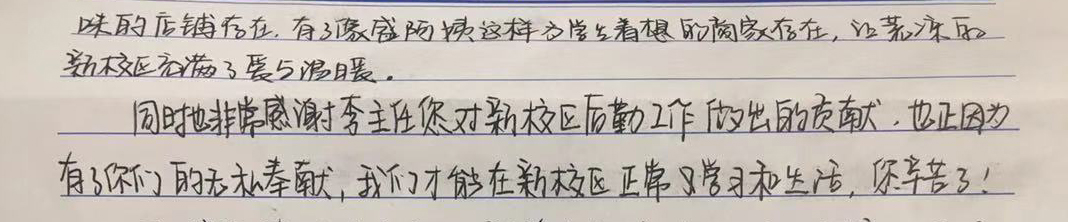 味的店铺存在,有了像盛阿姨这样为学生着想的商家存在,让荒凉的
新校区充满了爱与温暖。
同时也非常感谢李主任您对新校区后勤工作做出的贡献,也正因为
有了你们的无私奉献,我们才能在新校区正常学习和生活,您辛苦了!